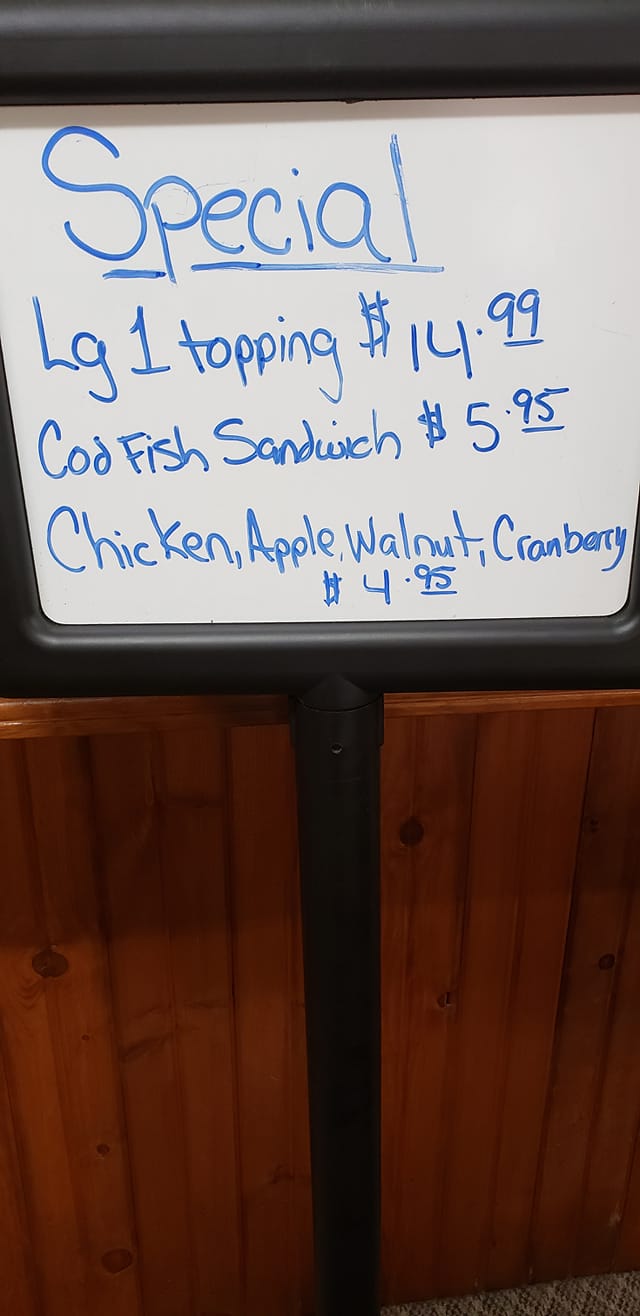 Special
Lg 1 topping $14.99
Cod Fish Sandwich $5.95
Chicken, Apple, Walnut, Cranberry
$4.95